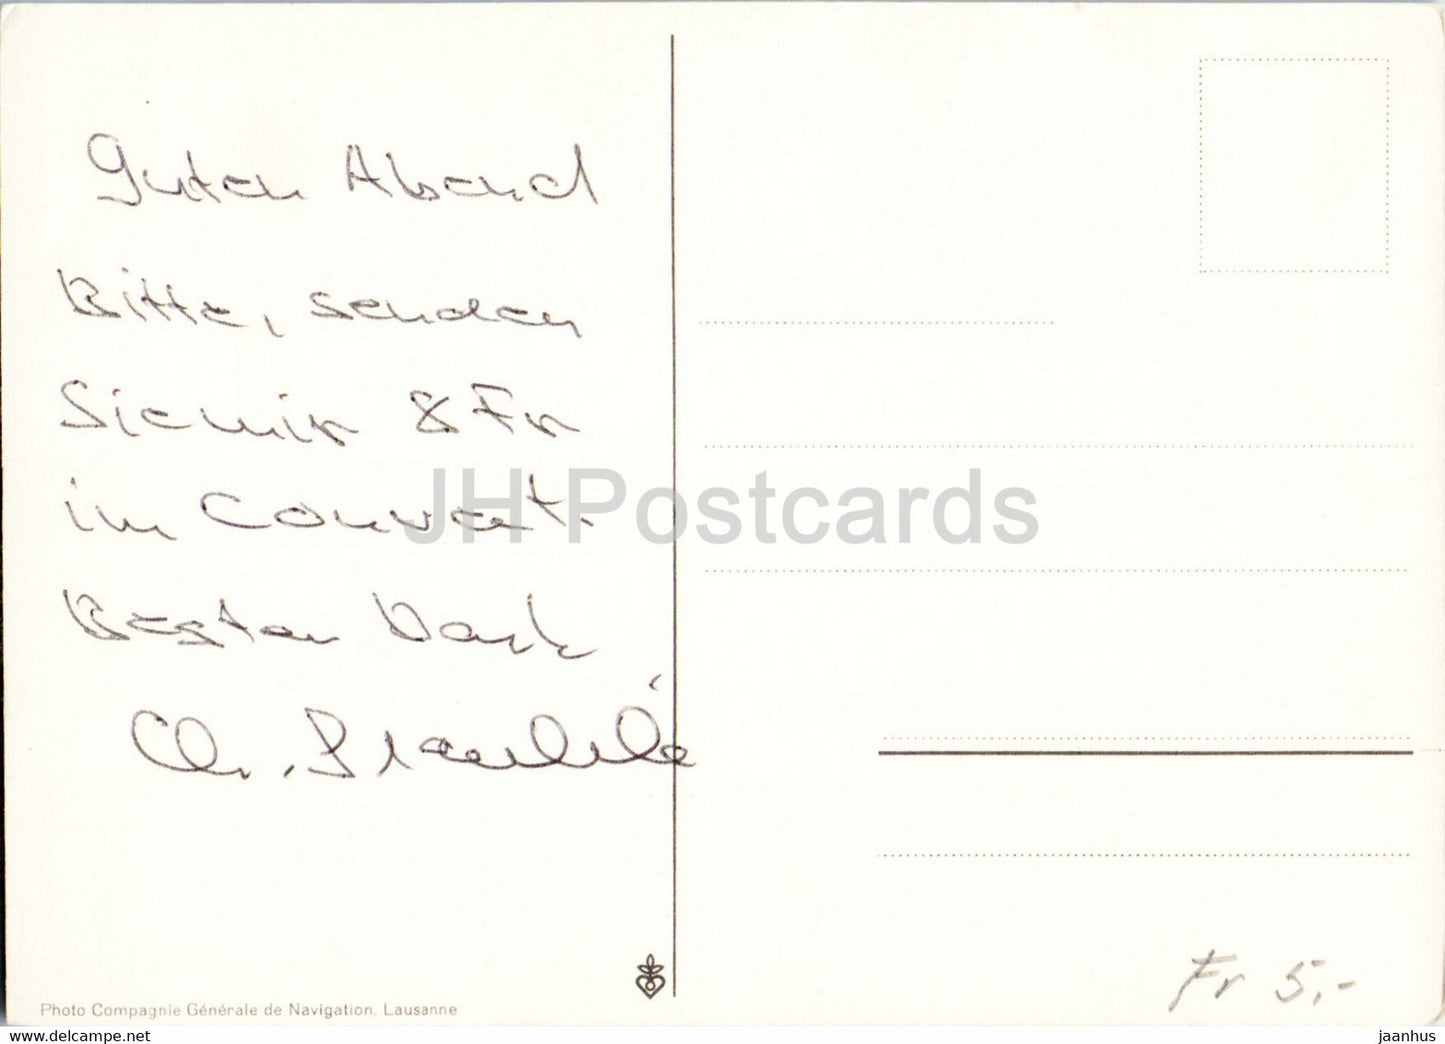 Guten Abend
Bitte, senden
Sie mir 8 Fr
im Couvert.
Besten Dank
Ch.
JH Postcards
Fr 5.-
Photo Compagnie Générale de Navigation, Lausanne
www.delcampe.net
jaanhus